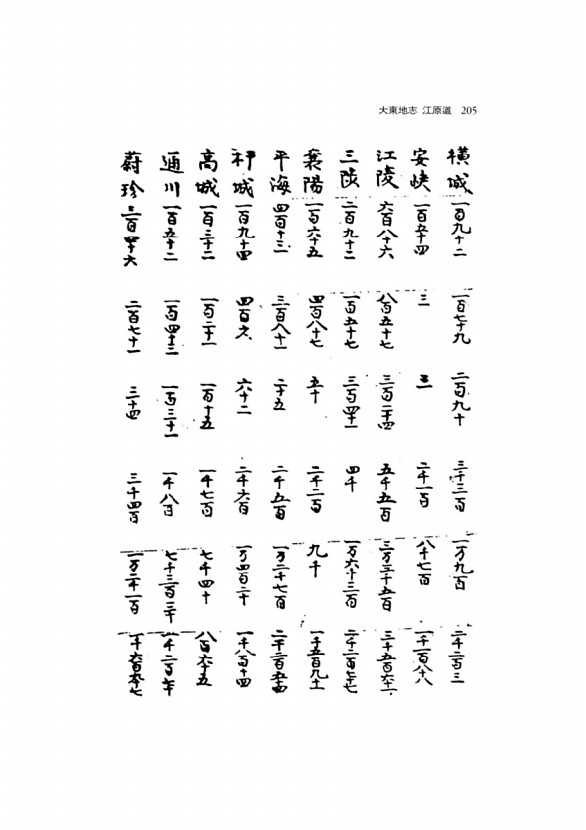 大東地志 江原道 205
橫城 一百九十二 一百七十九 二百九十 三千三百 一万九百 二千二百三
安峽 一百五十四 三 三 二千一百 八千七百 一千一百八十八
江陵 六百八十六 八百五十七 三百二十四 五千五百 三万三千五百 三千五百六十一
三陟 二百九十二 一百五十七 三百四十一 四千 一万六千三百 二千二百七十七
襄陽 一百六十五 四百八十七 五十 二千二百 九千
平海 四百十三 三百八十一 二十五 二千五百 一万二千七百
杆城 一百九十四 四百六 六十二 二千六百 一万四百二十 一千八百十四
高城 一百三十二 一百二十一 一百十五 一千七百 七千四十 八百六十五
通川 一百五十二 一百四十三 一百三十一 一千八百 七千三百三十
蔚珍 三百四十六 二百七十一 三十四 三千四百 一万二千一百